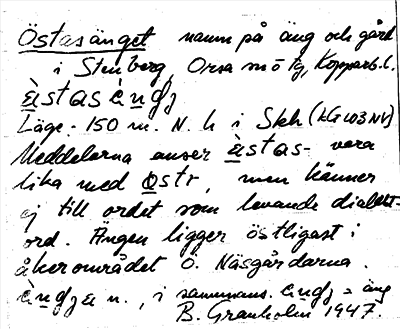 Östasänget namn på äng och gård
i Stenberg, Orsa sn ö tg, Kopparb. l.
ästas ängɟ
Läge: 150 m. N. h i Skh (kG 103 NV)
Meddelarna anser ästas- vara
lika med östr, men känner
ej till ordet som levande dialekt-
ord. Ängen ligger östligast i
åkerområdet Ö. Näsgårdarna
n., i sammans. = äng
B. Granholm 1947.